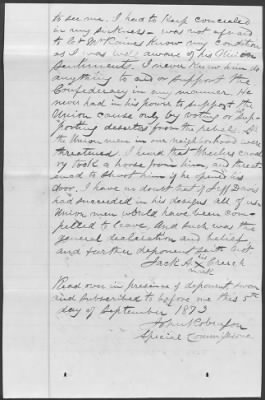 to see me. I had to keep concealed
in my sickness - was not afraid
to let McRaines know my condition
as I was well aware of his Union
Sentiments. I never knew him do
anything to aid or support the
Confederacy in any manner. He
never had in his power to support the
Union cause only by voting or sup-
porting deserters from the rebels. All
the Union men in our neighborhood were
threatened. I think that Wheelers Caval
ry took a horse from him, and threat
ened to shoot him if he opened his
door. I have no doubt that if Jeff Davis
had succeeded in his designs all of us
Union men would have been com-
pelled to leave. And such was the
general declaration and belief
and further deponent saith not
his
Jack A. X Creech
mark
Read over in presence of deponent sworn
and subscribed to before me this 5th
day of September 1873
John Robinson
Special Commissioner